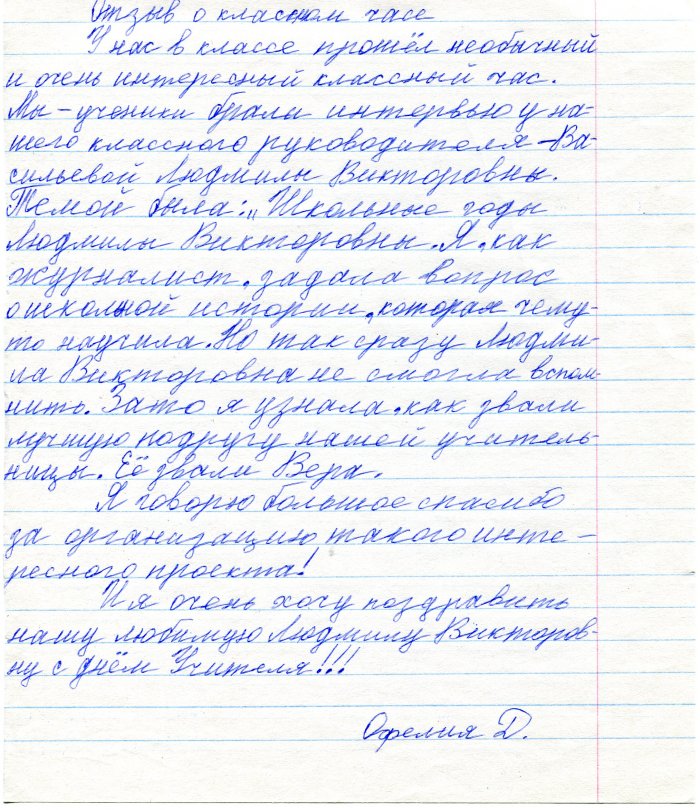 Отзыв о классном часе
У нас в классе прошёл необычный
и очень интересный классный час.
Мы - ученики брали интервью у на-
шего классного руководителя - Ва-
сильевой Людмилы Викторовны.
Темой была: „Школьные годы
Людмилы Викторовны. Я, как
журналист, задала вопрос
о школьной истории, которая чему-
то научила. Но так сразу Людми-
ла Викторовна не смогла вспом-
нить. Зато я узнала, как звали
лучшую подругу нашей учитель-
ницы. Её звали Вера.
Я говорю большое спасибо
за организацию такого инте-
ресного проекта!
И я очень хочу поздравить
нашу любимую Людмилу Викторов-
ну с днём Учителя!!!
Офелия Д.